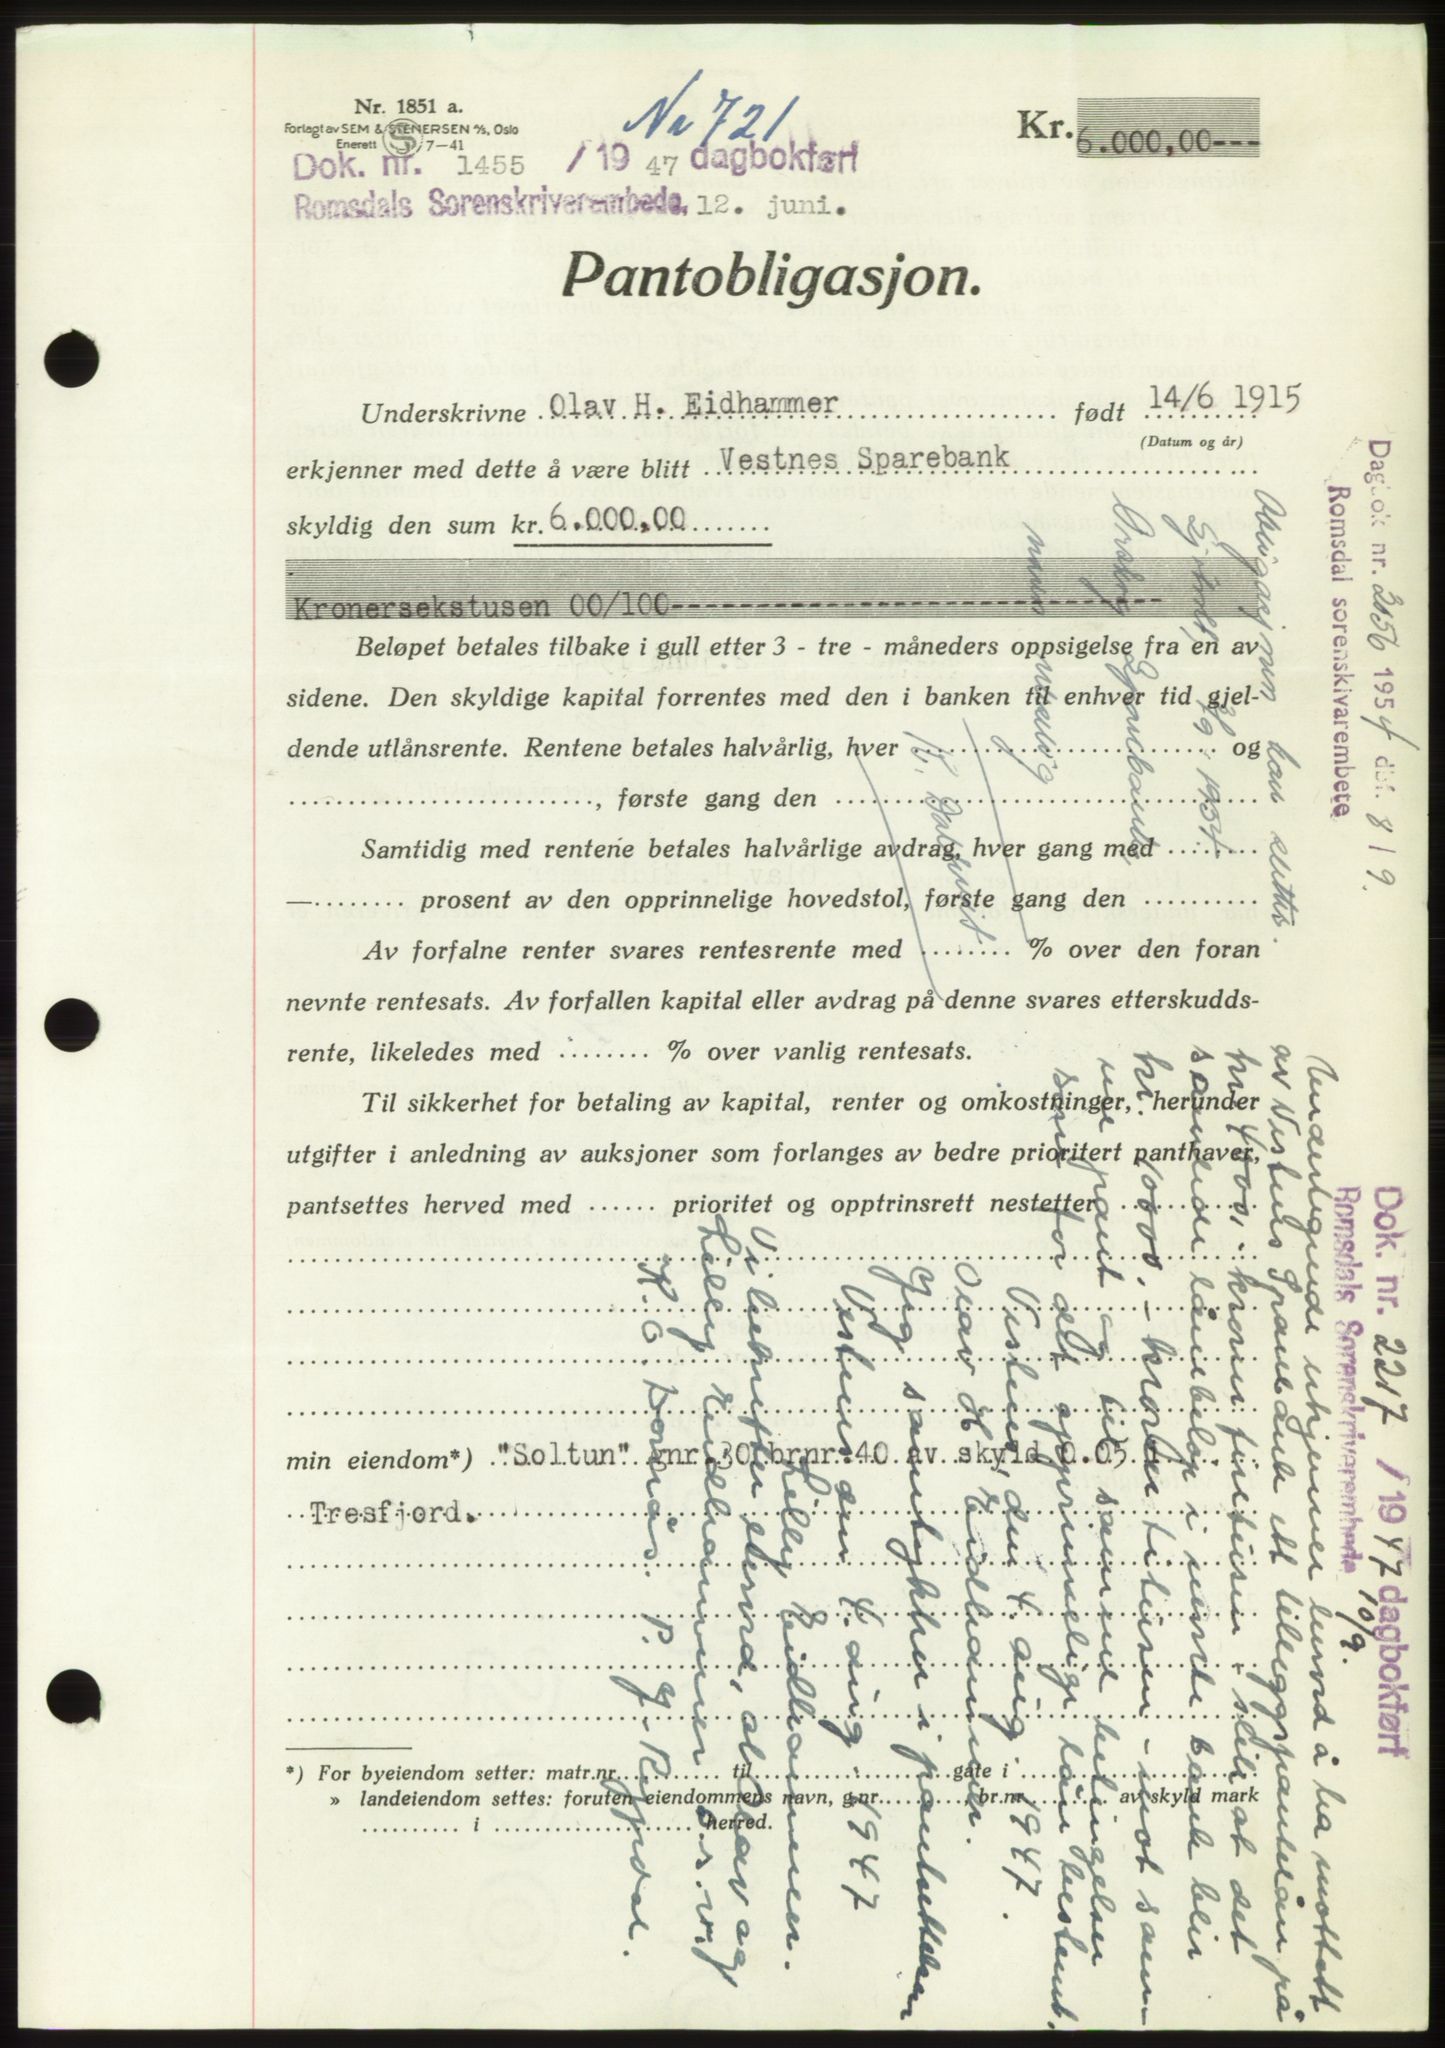 Nr. 1851 a.
Forlagt av SEM & STENERSEN A/S, Oslo
Enerett 7-41
No 721
Kr. 6.000,00---
Dok. nr. 1455 / 19 47 dagbokført
Romsdals Sorenskriverembede, 12. juni.
Pantobligasjon.
Underskrivne Olav H. Eidhammer født 14/6 1915
(Datum og år)
erkjenner med dette å være blitt Vestnes Sparebank
skyldig den sum kr. 6.000,00
Kronersekstusen 00/100---
Beløpet betales tilbake i gull etter 3 - tre - måneders oppsigelse fra en av
sidene. Den skyldige kapital forrentes med den i banken til enhver tid gjel-
dende utlånsrente. Rentene betales halvårlig, hver .......... og
.........., første gang den ..........
Samtidig med rentene betales halvårlige avdrag, hver gang med ........
—........ prosent av den opprinnelige hovedstol, første gang den ..........
Av forfalne renter svares rentesrente med ........ % over den foran
nevnte rentesats. Av forfallen kapital eller avdrag på denne svares etterskudds-
rente, likeledes med ........ % over vanlig rentesats.
Til sikkerhet for betaling av kapital, renter og omkostninger, herunder
utgifter i anledning av auksjoner som forlanges av bedre prioritert panthaver,
pantsettes herved med ...... prioritet og opptrinsrett nestetter ..........
min eiendom*) "Soltun" gnr. 30 br.nr. 40 av skyld 0.05 i
Tresfjord.
*) For byeiendom setter: matr.nr. .......... til .......... gate i ..........
» landeiendom settes: foruten eiendommens navn, g.nr. .......... br.nr. .......... av skyld mark
.......... i .......... herred.
Dagbok nr. 2156 1954 dbf. 8/9.
Romsdal sorenskrivarembete
Obligasjonen kan slettes.
Gjermundnes, 3/9 - 1954
Ørskog Sparebank
Dok. nr. 2217 / 1947 dagbokført
Romsdals Sorenskriverembede 10/9.
Undertegnede erkjenner herved å ha mottatt
av Vestnes Sparebank et tilleggspantelån på
kr 4000,- kroner firetusen - slik at det
samlede lånebeløp i nevnte bank blir
kr. 10000,- kroner titusen - mot sam-
me pant og til samme betingelser
som for det opprinnelige lån bestemt.
Vestnes, den 4. aug. 1947.
Olav H. Eidhammer.
Jeg samtykker i pantsettelsen
Vestnes den 4. aug - 1947
Lilly Eidhammer.
Vi bekrefter herved, at Olav og
Lilly Eidhammer o.s.v.
K. O. Bønås. P. G. Rypdal.